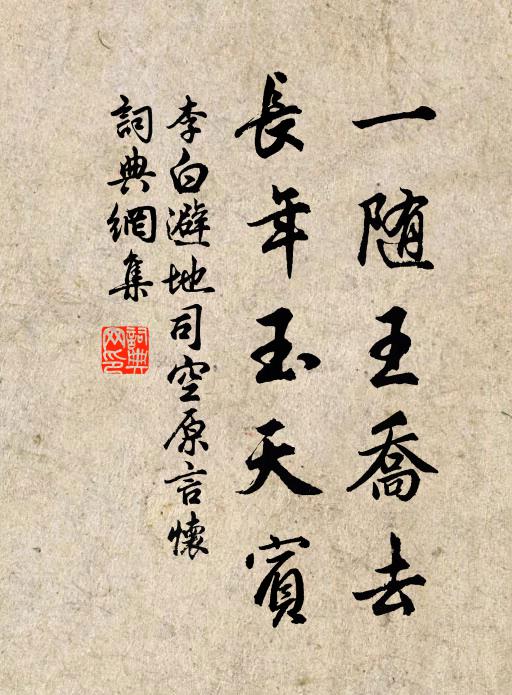 一随王喬去
長年玉天賓
李白避地司空原言懷
詞典網集
詞典網印